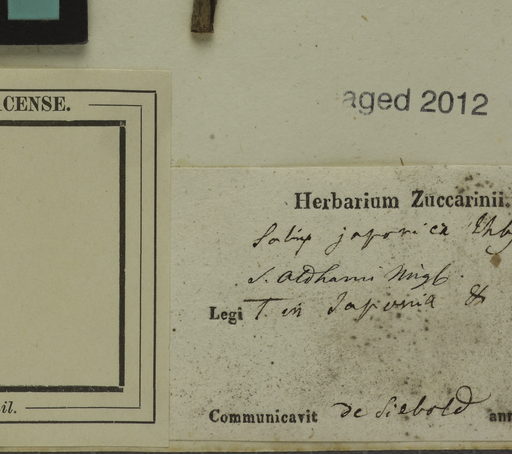 ACENSE.
aged 2012
Herbarium Zuccarinii.
Salix japonica Thbg
S. Oldhami Miq
Legi T. in Japonia &
il.
Communicavit de Siebold ann